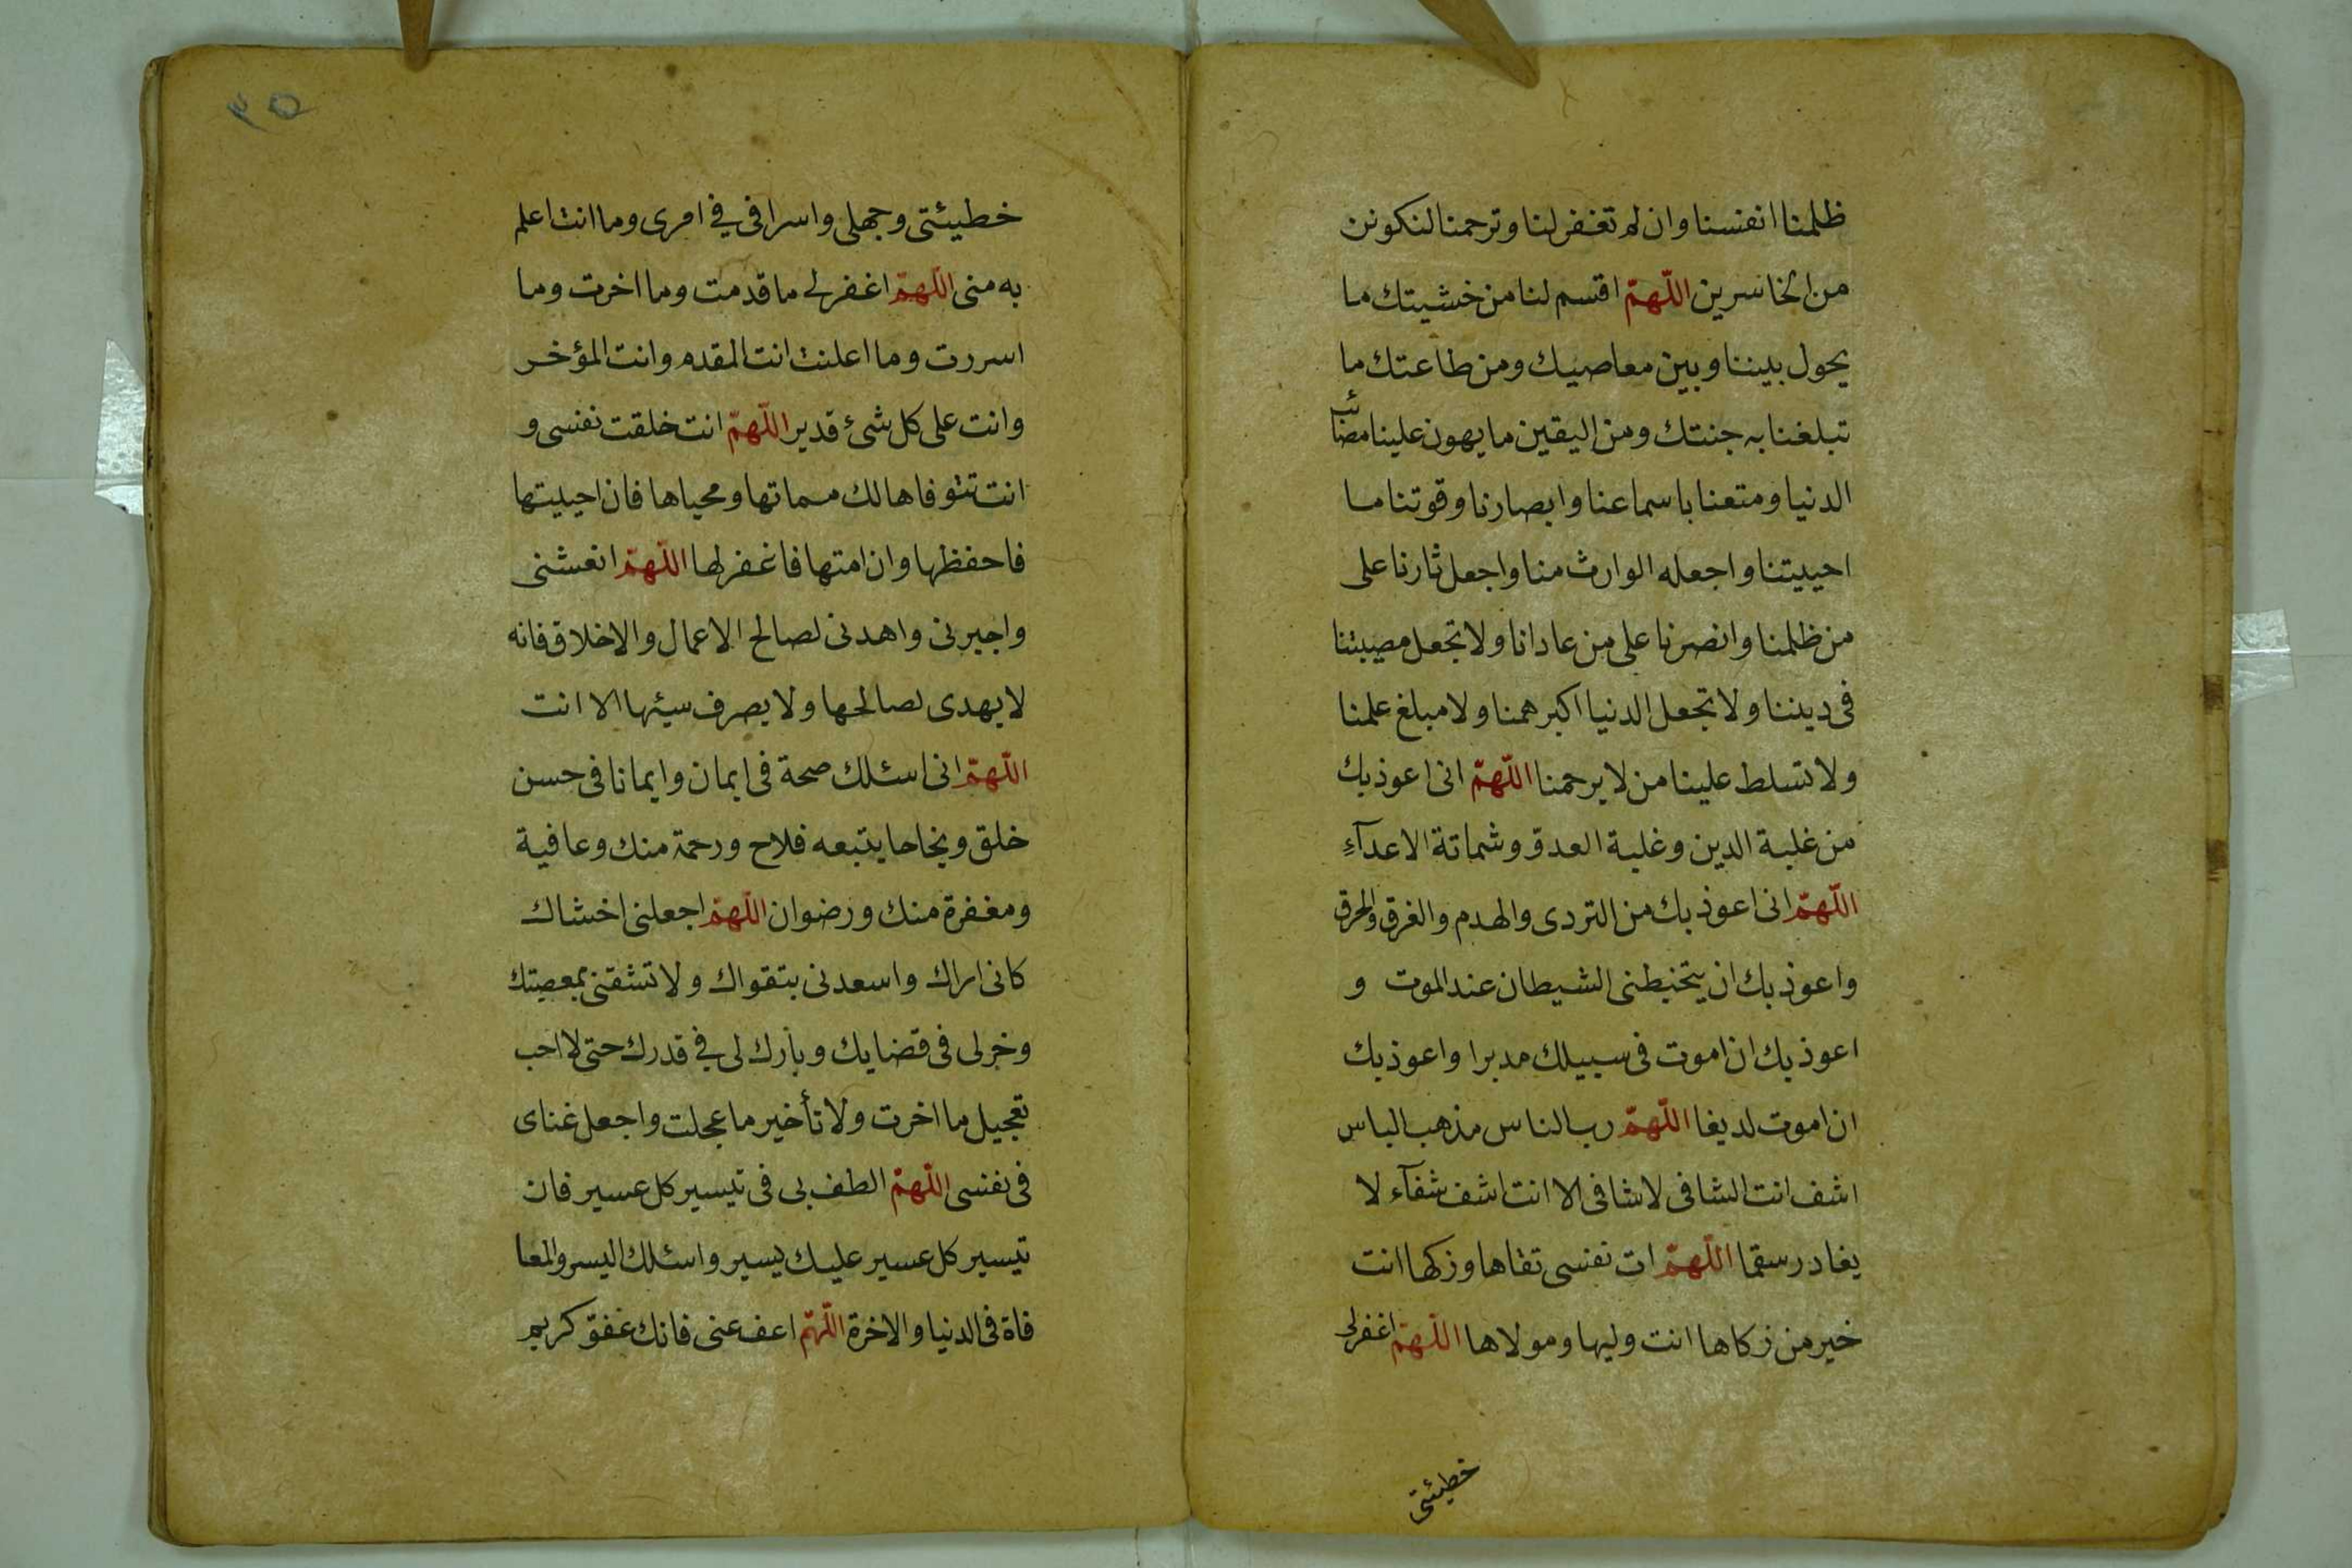 ظلمنا انفسنا وان لم تغفر لنا وترحمنا لنكونن
من الخاسرين اللّهمّ اقسم لنا من خشيتك ما
يحول بيننا وبين معاصيك ومن طاعتك ما
تبلغنا به جنتك ومن اليقين ما يهون علينا مصائب
الدنيا ومتعنا باسماعنا وابصارنا وقوتنا ما
احييتنا واجعله الوارث منا واجعل ثارنا على
من ظلمنا وانصرنا على من عادانا ولا تجعل مصيبتنا
فى ديننا ولا تجعل الدنيا اكبر همنا ولا مبلغ علمنا
ولا تسلط علينا من لا يرحمنا اللّهمّ انى اعوذ بك
من غلبة الدين وغلبة العدوّ وشماتة الاعدآءِ
اللّهمّ انى اعوذ بك من التردى والهدم والغرق والحرق
واعوذ بك ان يتخبطنى الشيطان عند الموت و
اعوذ بك ان اموت فى سبيلك مدبرا واعوذ بك
ان اموت لديغا اللّهمّ رب الناس مذهب الباس
اشف انت الشافى لا شافى الا انت اشف شفآء لا
يغادر سقما اللّهمّ ات نفسى تقاها وزكها انت
خير من زكاها انت وليها ومولاها اللّهمّ اغفر لى
خطيئتى
٣٥
خطيئتى وجهلى واسرافى فى امرى وما انت اعلم
به منى اللّهمّ اغفر لى ما قدمت وما اخرت وما
اسررت وما اعلنت انت المقدم وانت المؤخر
وانت على كل شئ قدير اللّهمّ انت خلقت نفسى و
انت تتوفاها لك مماتها ومحياها فان احييتها
فاحفظها وان امتها فاغفر لها اللّهمّ انعشنى
واجبرنى واهدنى لصالح الاعمال والاخلاق فانه
لا يهدى لصالحها ولا يصرف سيئها الا انت
اللّهمّ انى اسئلك صحة فى ايمان وايمانا فى حسن
خلق ونجاحا يتبعه فلاح ورحمة منك وعافية
ومغفرة منك ورضوان اللّهمّ اجعلنى اخشاك
كانى اراك واسعدنى بتقواك ولا تشقنى بمعصيتك
وخر لى فى قضايك وبارك لى فى قدرك حتى لا احب
تعجيل ما اخرت ولا تأخير ما عجلت واجعل غناى
فى نفسى اللّهمّ الطف بى فى تيسير كل عسير فان
تيسير كل عسير عليك يسير واسئلك اليسر والمعا
فاة فى الدنيا والاخرة اللّهمّ اعف عنى فانك عفوّ كريم